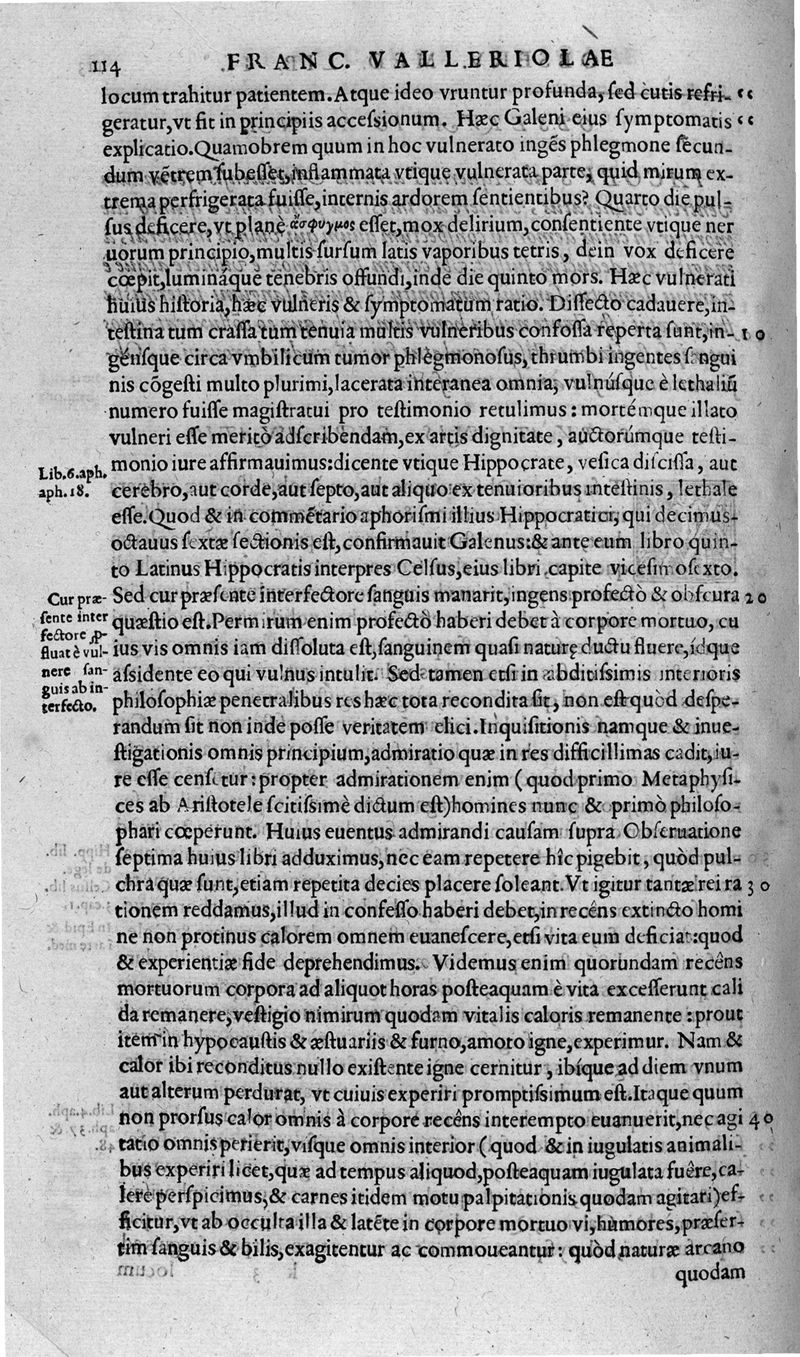 114 FRANC. VALLERIOLAE
locum trahitur patientem. Atque ideo vruntur profunda, sed cutis refri- “
geratur, vt fit in principiis accessionum. Hæc Galeni eius symptomatis “
explicatio. Quamobrem quum in hoc vulnerato ingẽs phlegmone secun-
dum vẽtrem subesset, inflammata vtique vulnerata parte, quid mirum ex-
trema perfrigerata fuisse, internis ardorem sentientibus? Quarto die pul-
sus deficere, vt planè ἄσφυγμος esset, mox delirium, consentiente vtique ner
uorum principio, multis sursum latis vaporibus tetris, dein vox deficere
cœpit, luminaque tenebris offundi, inde die quinto mors. Hæc vulnerati
huius historia, hæc vulneris & symptomatum ratio. Dissecto cadauere, in-
testina tum crassa tum tenuia multis vulneribus confossa reperta sunt, in- 10
génsque circa vmbilicum tumor phlegmonosus, thrumbi ingentes sangui
nis cõgesti multo plurimi, lacerata interanea omnia, vulnúsque è lethaliũ
numero fuisse magistratui pro testimonio retulimus: mortémque illato
vulneri esse meritò adscribendam, ex artis dignitate, auctorúmque testi-
Lib. 6. aph. monio iure affirmauimus: dicente vtique Hippocrate, vesica discissa, aut
aph. 18. cerebro, aut corde, aut septo, aut aliquo ex tenuioribus intestinis, lethale
esse. Quod & in commẽtario aphorismi illius Hippocratici, qui decimus-
octauus sextæ sectionis est, confirmauit Galenus: & ante eum libro quin-
to Latinus Hippocratis interpres Celsus, eius libri capite vicesimosexto.
Cur præ- Sed cur præsente interfectore sanguis manarit, ingens profectò & obscura 20
sente inter quæstio est. Permirum enim profectò haberi debet à corpore mortuo, cu
fectore, p-
fluat è vul- ius vis omnis iam dissoluta est, sanguinem quasi naturę ductu fluere, idque
nere san- assidente eo qui vulnus intulit. Sed tamen etsi in abditissimis interioris
guis ab in-
terfecto. philosophiæ penetralibus res hæc tota recondita sit, non est quòd despe-
randum sit non inde posse veritatem elici. Inquisitionis namque & inue-
stigationis omnis principium, admiratio quæ in res difficillimas cadit, iu-
re esse censetur: propter admirationem enim (quod primo Metaphysi-
ces ab Aristotele scitissimè dictum est) homines nunc & primò philoso-
phari cœperunt. Huius euentus admirandi causam supra Obseruatione
septima huius libri adduximus, nec eam repetere hîc pigebit, quòd pul-
chra quæ sunt, etiam repetita decies placere soleant. Vt igitur tantæ rei ra 30
tionem reddamus, illud in confesso haberi debet, in recéns extincto homi
ne non protinus calorem omnem euanescere, etsi vita eum deficiat: quod
& experientiæ fide deprehendimus. Videmus enim quorundam recêns
mortuorum corpora ad aliquot horas posteaquam è vita excesserunt cali
da remanere, vestigio nimirum quodam vitalis caloris remanente: prout
item in hypocaustis & æstuariis & furno, amoto igne, experimur. Nam &
calor ibi reconditus nullo existente igne cernitur, ibíque ad diem vnum
aut alterum perdurat, vt cuiuis experiri promptissimum est. Itaque quum
non prorsus calor omnis à corpore recêns interempto euanuerit, nec agi 40
tatio omnis perierit, visque omnis interior (quod & in iugulatis animali-
bus experiri licet, quæ ad tempus aliquod, posteaquam iugulata fuêre, ca-
lere perspicimus, & carnes itidem motu palpitationis quodam agitari) ef-
ficitur, vt ab occulta illa & latẽte in corpore mortuo vi, humores, præser-
tim sanguis & bilis, exagitentur ac commoueantur: quòd naturæ arcano
quodam